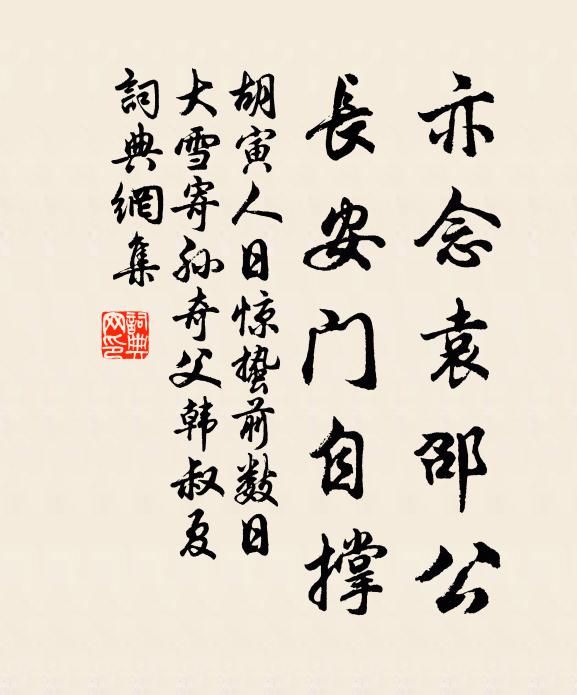 亦念袁邵公
長安門自撑
胡寅人日惊蛰前数日
大雪寄孙奇父韩叔夏
詞典網集
詞典网印